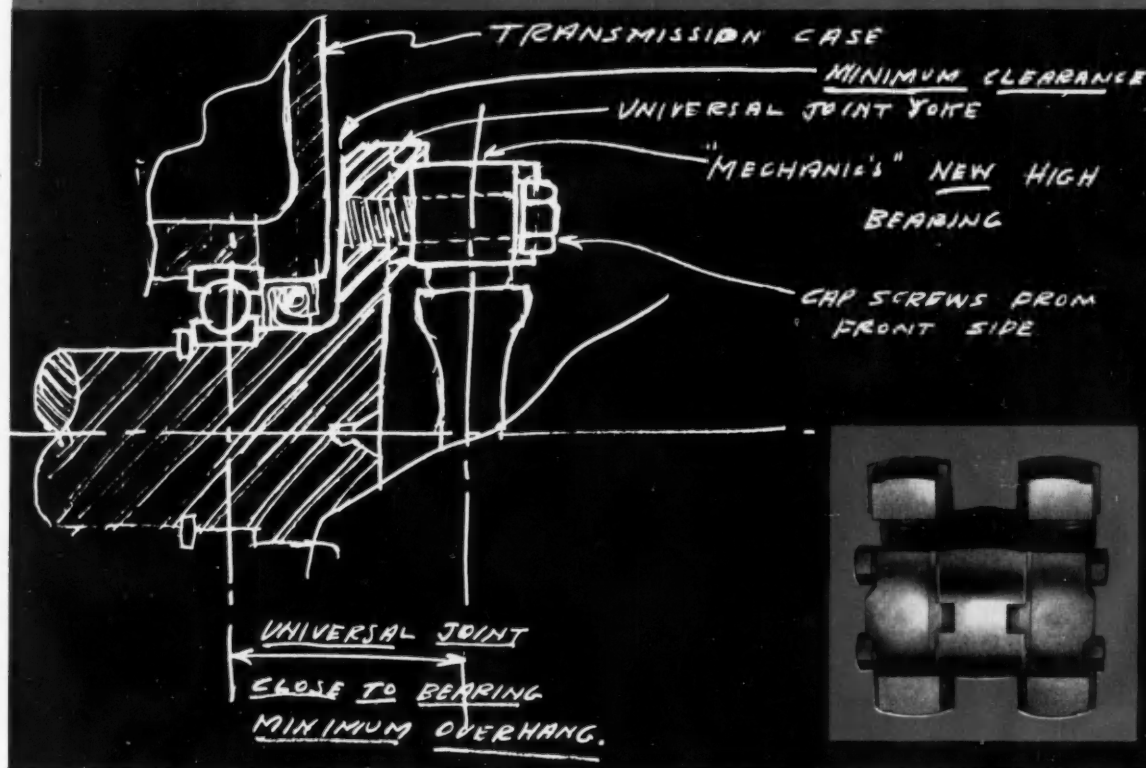 TRANSMISSION CASE
MINIMUM CLEARANCE
UNIVERSAL JOINT YOKE
"MECHANIC'S" NEW HIGH
BEARING
CAP SCREWS FROM
FRONT SIDE
UNIVERSAL JOINT
CLOSE TO BEARING
MINIMUM OVERHANG.